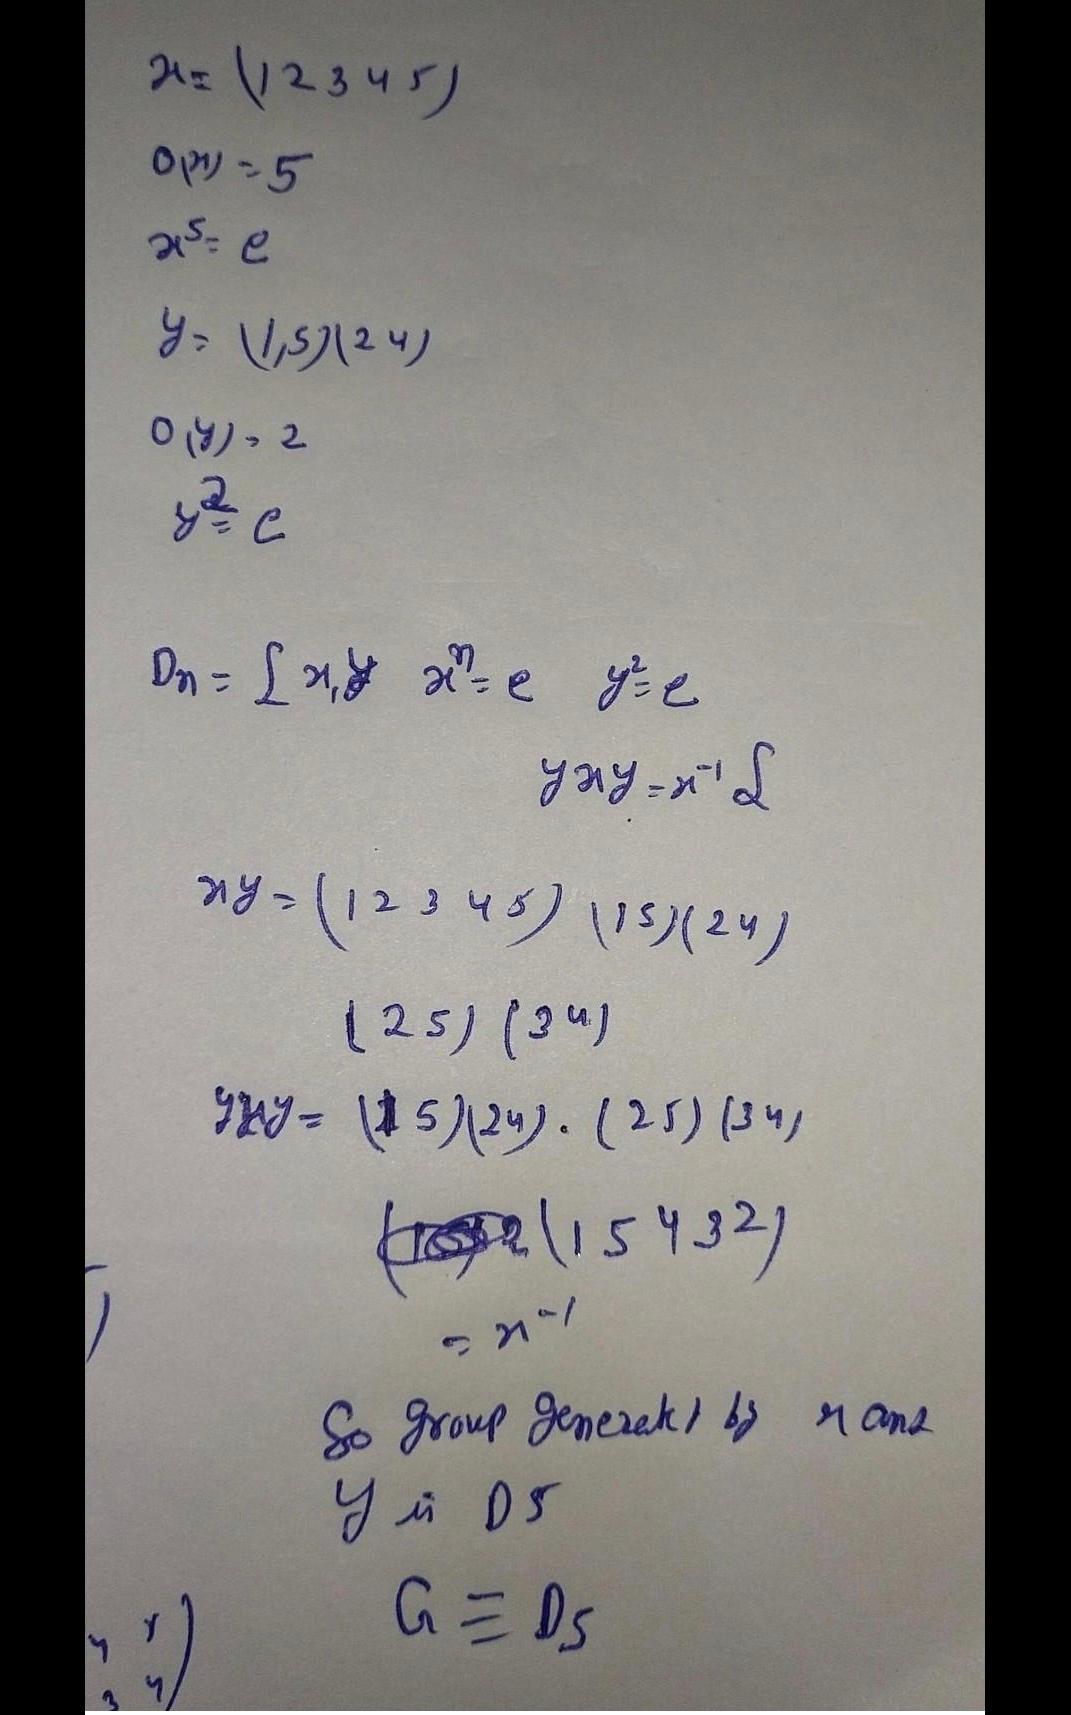 x = (1 2 3 4 5)
O(x) = 5
x⁵ = e
y = (1,5)(2 4)
O(y) = 2
y² = e
Dn = { x, y xⁿ = e y² = e
yxy = x⁻¹ }
xy = (1 2 3 4 5) (15)(24)
(25) (34)
yxy = (15)(24) . (25) (34)
(1 5 4 3 2)
= x⁻¹
So group by x and
y is D5
G ≡ D5
)
4
3 4)